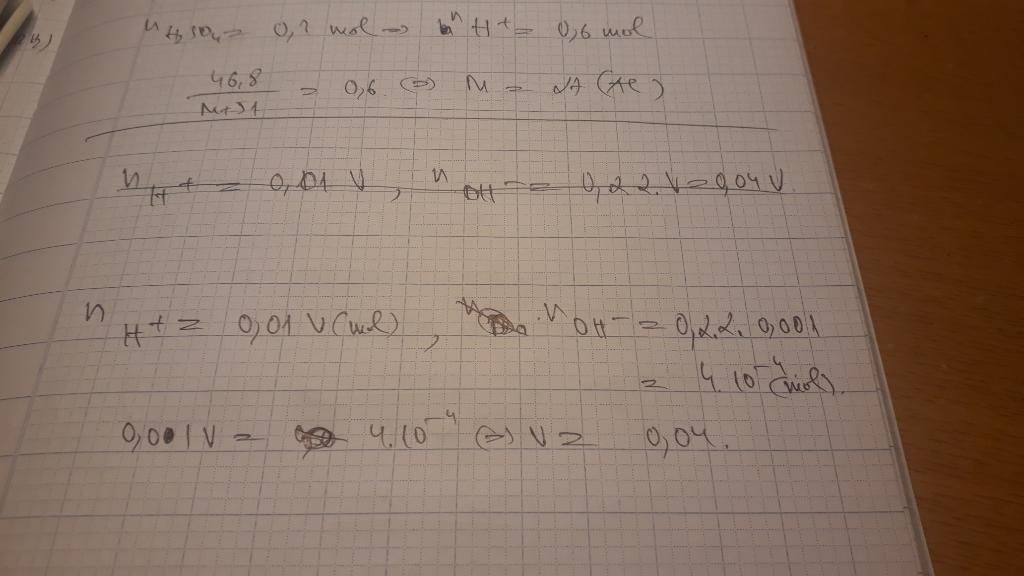 n H₂SO₄ = 0,3 mol => n H⁺ = 0,6 mol
46,8 / M+51 = 0,6 <=> M = 27 (Al)
n H⁺ = 0,01 V, n OH⁻ = 0,2.2.V = 0,04 V
n H⁺ = 0,01 V (mol), n OH⁻ = 0,2.2.0,001
= 4.10⁻⁴ (mol).
0,01 V = 4.10⁻⁴ <=> V = 0,04.